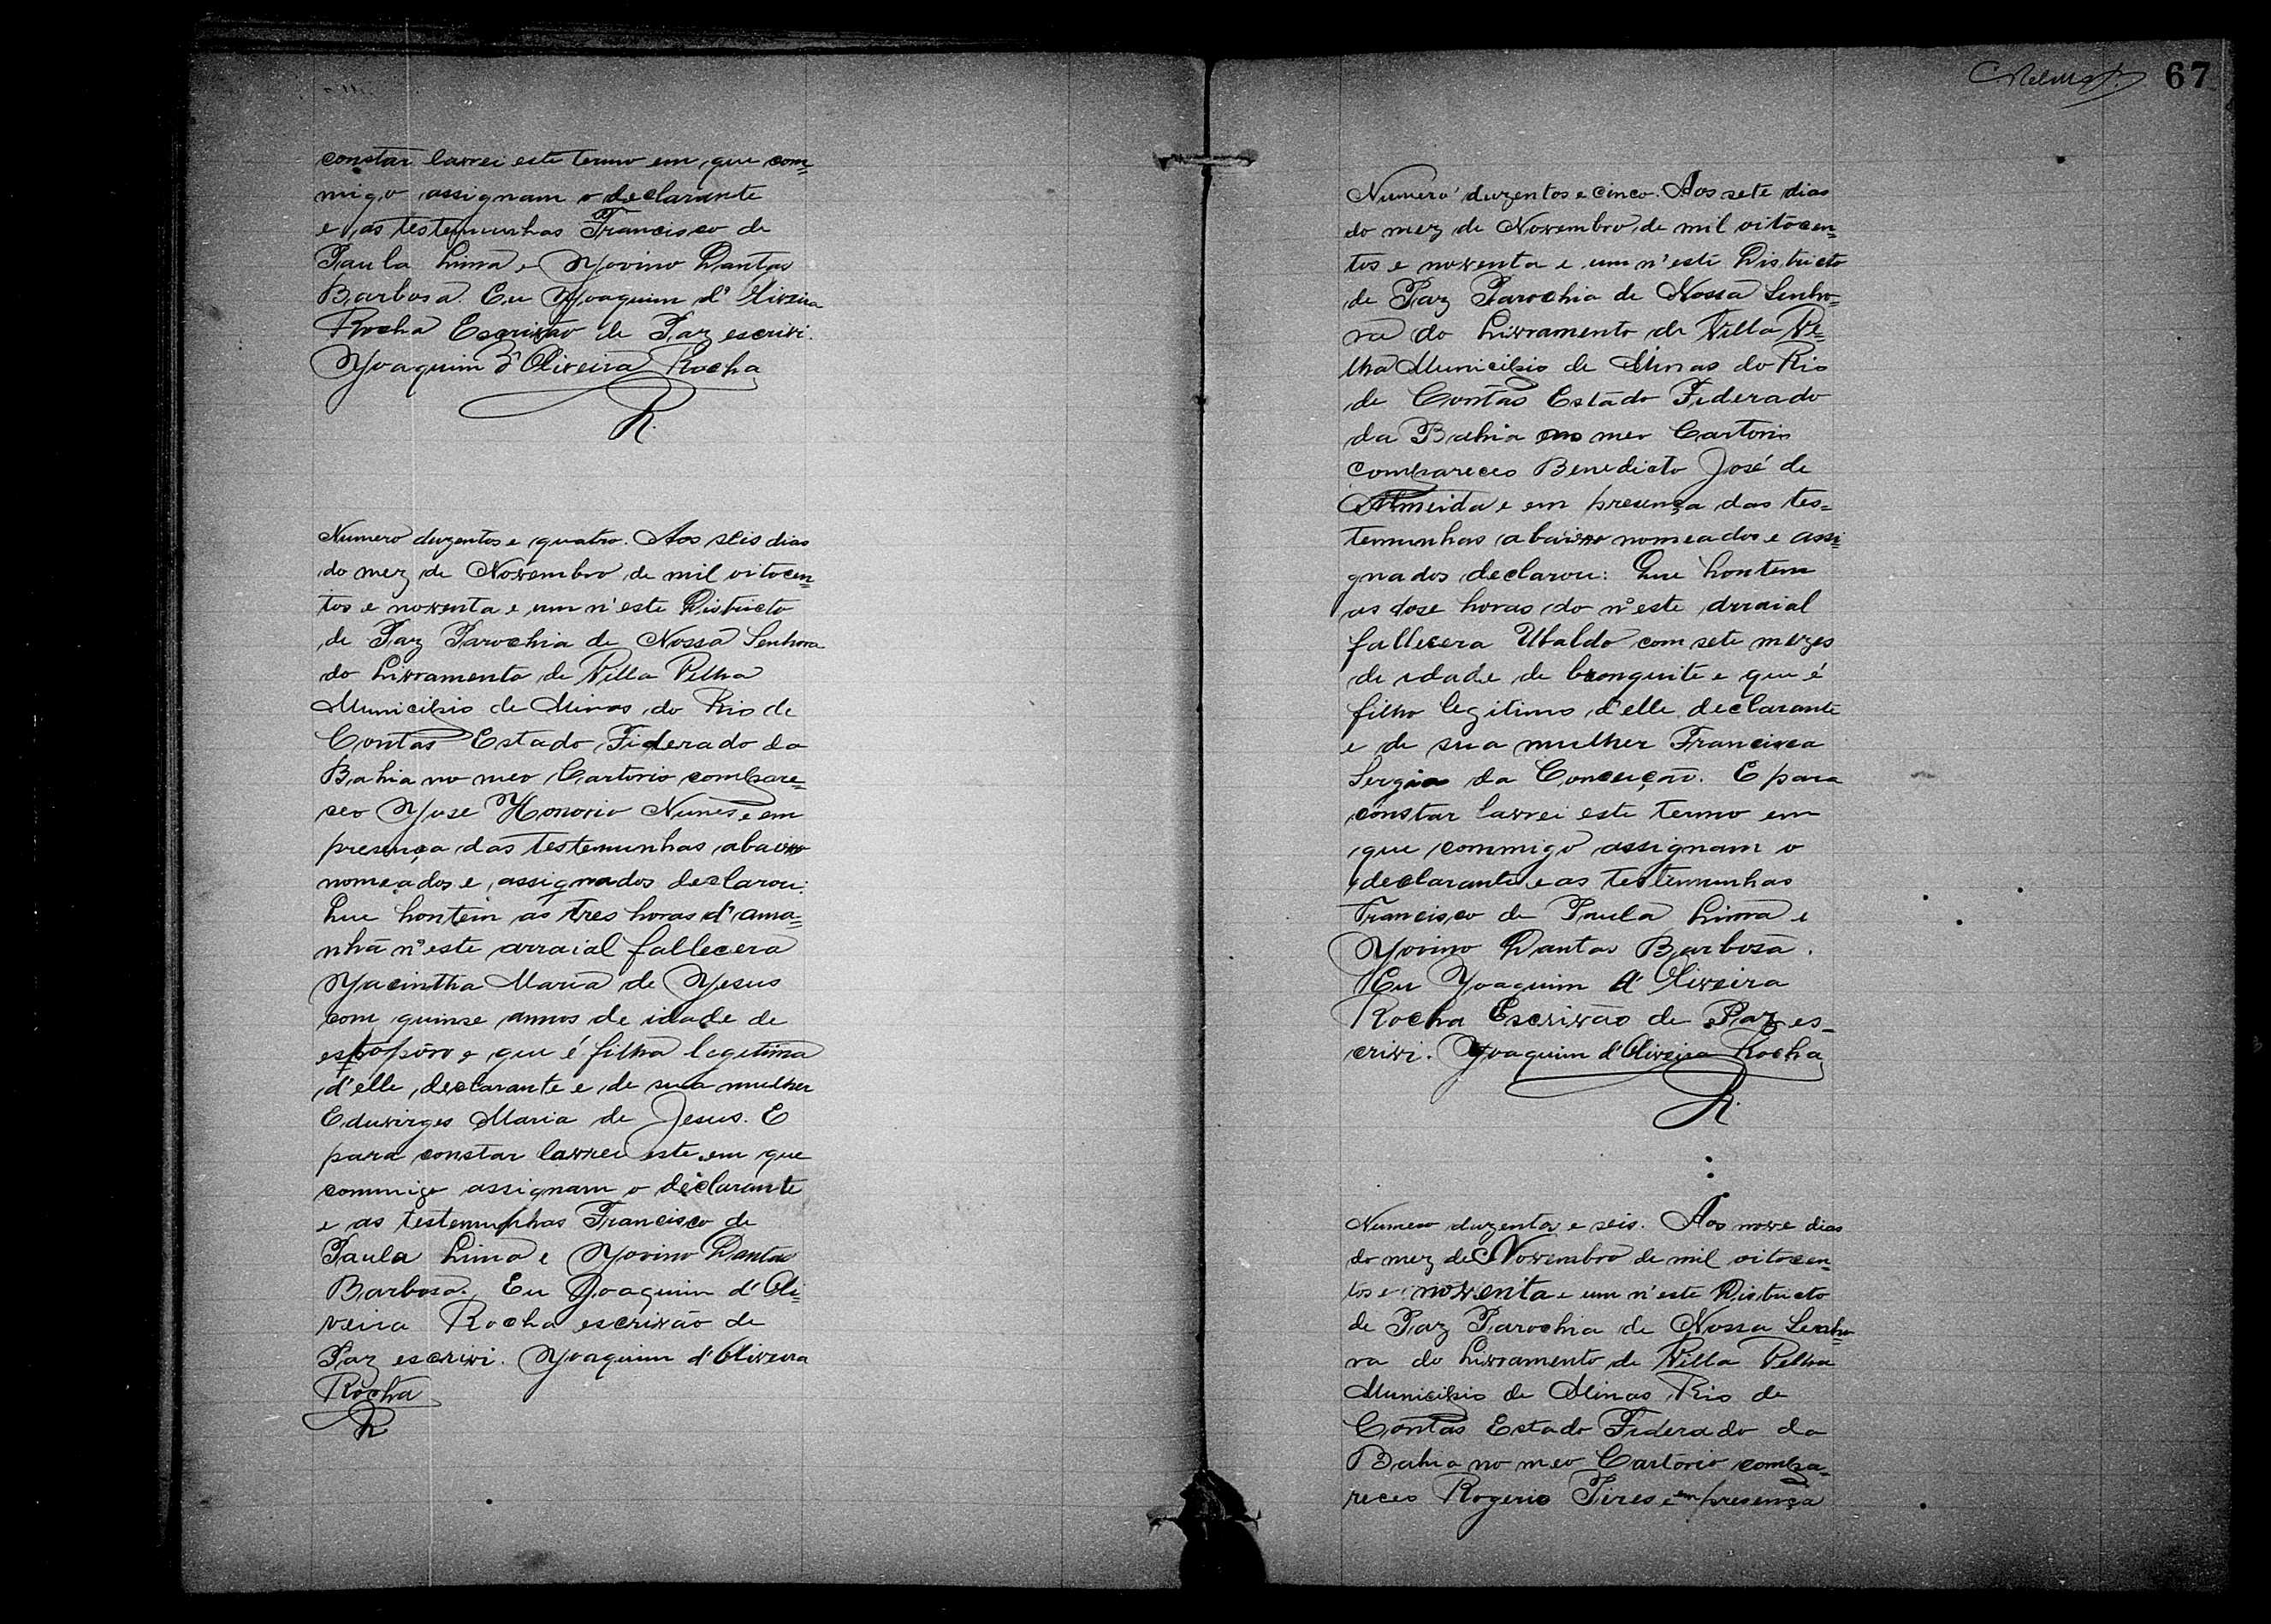 constar lavrei este termo em que com=
migo assignam o declarante
e as testemunhas Francisco de
Paula Lima e Jovino Dantas
Barbosa. Eu Joaquim d'Oliveira
Rocha Escrivão de Paz escrivi.
Joaquim d'Oliveira Rocha
R.
Numero duzentos e quatro. Aos seis dias
do mez de Novembro de mil oitocen=
tos e noventa e um n'este Districto
de Paz Parochia de Nossa Senhora
do Livramento de Villa Velha
Municipio de Minas do Rio de
Contas Estado Fiderado da
Bahia no meo Cartorio compare=
ceo Jose Honorio Nunes e em
presença das testemunhas abaixo
nomeados e assignados declarou:
Que hontem as tres horas d'ama=
nhã n'este arraial fallecera
Jacintha Maria de Jesus
com quinse annos de idade de
e que é filha legitima
d'elle declarante e de sua mulher
Eduvirges Maria de Jesus. E
para constar lavrei este em que
commigo assignam o declarante
e as testemunhas Francisco de
Paula Lima e Jovino Dantas
Barbosa. Eu Joaquim d'Oli=
veira Rocha escrivão de
Paz escrivi. Joaquim d'Oliveira
Rocha
R
67
Numero duzentos e cinco. Aos sete dias
do mez de Novembro de mil oitocen=
tos e noventa e um n'este Districto
de Paz Parochia de Nossa Senho=
ra do Livramento de Villa Ve=
lha Municipio de Minas do Rio
de Contas Estado Fiderado
da Bahia no meo Cartorio
compareceo Benedicto José de
Almeida e em presença das tes=
temunhas abaixo nomeados e assi=
gnados declarou: Que hontem
as dose horas do n'este arraial
fallecera Ubaldo com sete mezes
de idade de bronquite e que é
filho legitimo d'elle declarante
e de sua mulher Francisca
Sergia da Conceição. E para
constar lavrei este termo em
que commigo assignam o
declarante e as testemunhas
Francisco de Paula Lima e
Jovino Dantas Barbosa.
Eu Joaquim d'Oliveira
Rocha Escrivão de Paz es=
crivi. Joaquim d'Oliveira Rocha
R.
Numero duzentos e seis. Aos nove dias
do mez de Novembro de mil oitocen=
tos e noventa e um n'este Districto
de Paz Parochia de Nossa Senho=
ra do Livramento de Villa Velha
Municipio de Minas Rio de
Contas Estado Fiderado da
Bahia no meo Cartorio compa=
receo Rogerio Pires e em presença